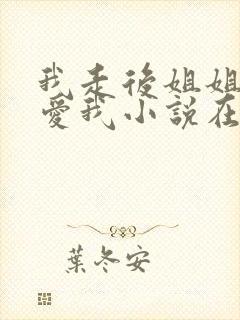 我走後姐姐
愛我小說在
葉冬安